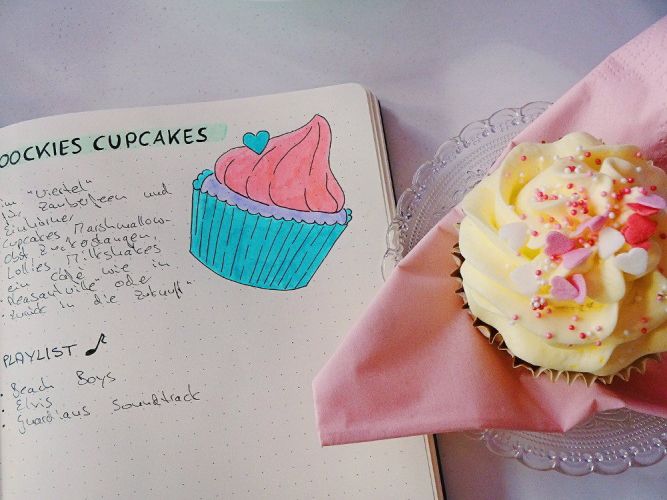 OOCKIES CUPCAKES
im "Viertel"
für Zauberfeen und
Einhörner
Cupcakes, Marshmallow-
obst, Zuckerstangen,
Lollies, Milkshakes
ein Café wie in
Pleasantville oder
"zurück in die Zukunft"
PLAYLIST
• Beach Boys
• Elvis
• Guardians Soundtrack